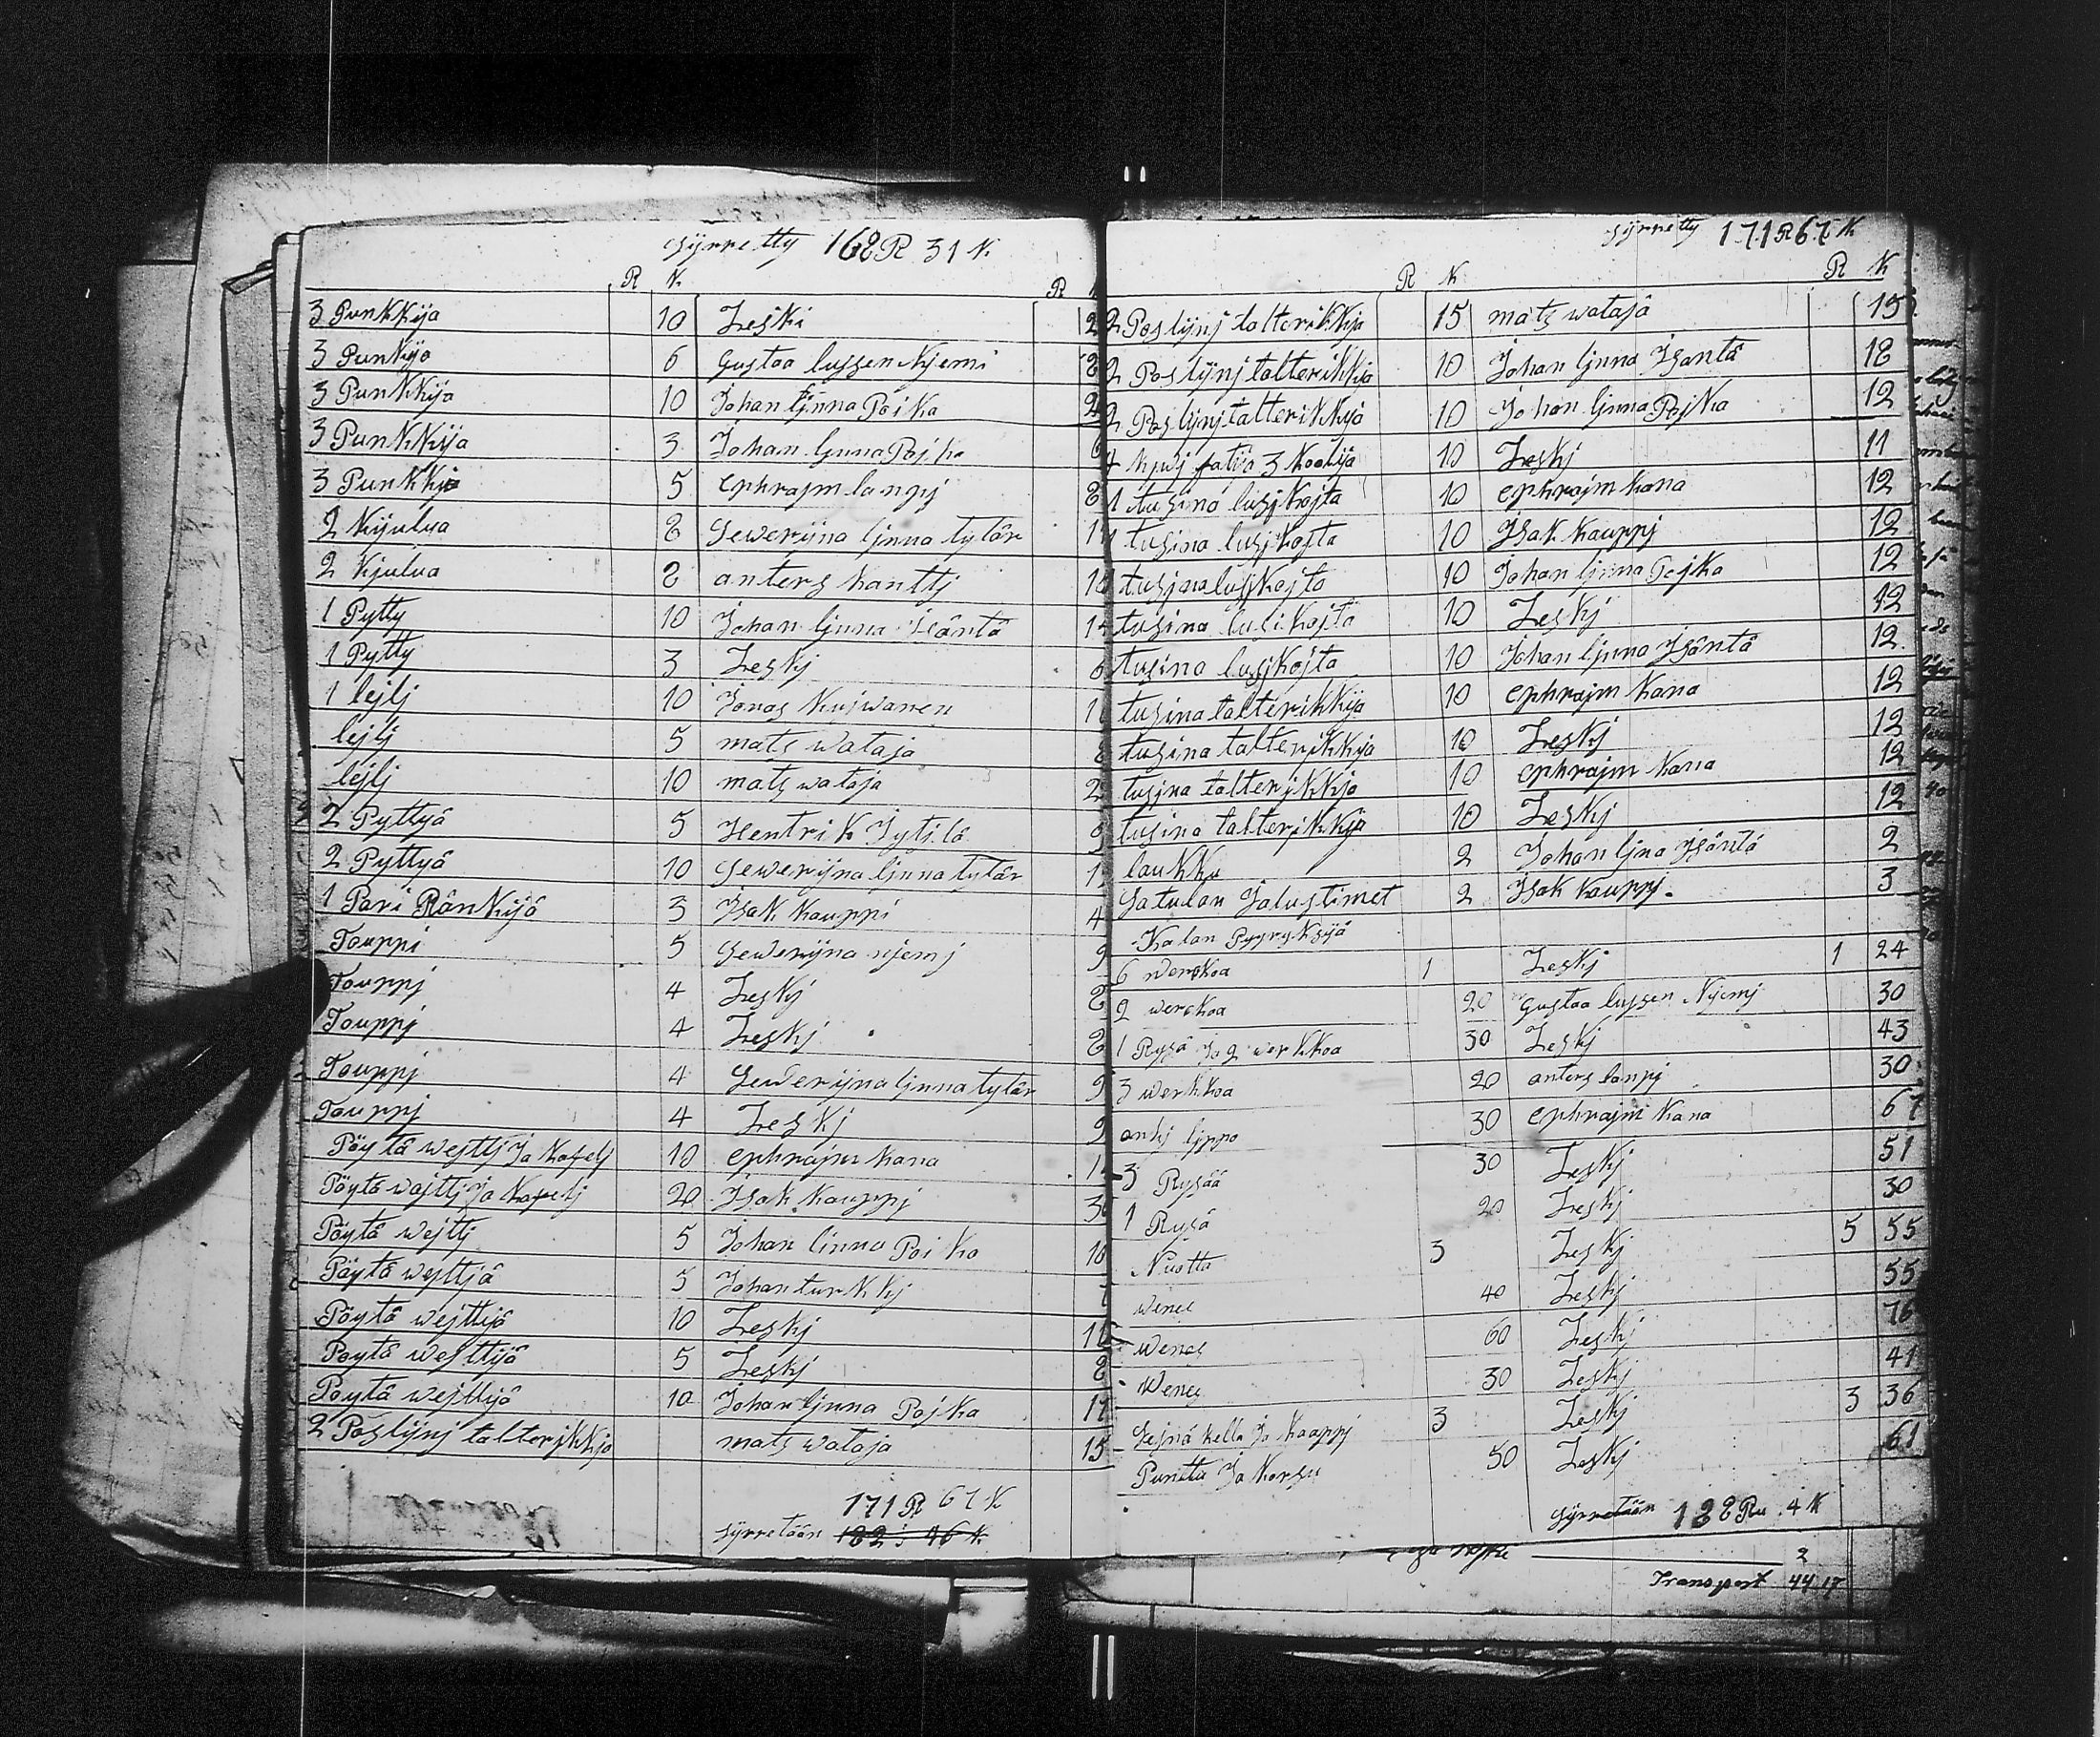 syrretty 168 R 31 K
R K R
3 Punkkija 10 Leski 2
3 Punkija 6 Gustaa lussen Njemi 8
3 Punkkija 10 Johan ljnna Poika 2
3 Punkkija 3 Johan ljnna Pojka 6
3 Punkkja 5 ephrajm lampj 8
2 Kijulua 8 Sewerijna ljnna tytär 1
2 Kjulua 8 anters kanttj 10
1 Pytty 10 Johan ljnna Isäntä 1
1 Pytty 3 Leskj 6
1 lejlj 10 Jonas Kujwanen 1
lejlj 5 mats wataja 8
lejlj 10 mats wataja 2
2 Pyttyä 5 Hentrik Jytilä
2 Pyttyä 10 Sewerijna ljnna tytär 1
1 Pari Ränkijä 3 Isak Kauppi 4
Touppi 5 Sewerijna njemj 9
Touppj 4 Leskj 8
Touppj 4 Leskj 8
Touppj 4 Sewerijna ljnna tytär 9
Touppj 4 Leskj 9
Pöytä wejttj ja Kafelj 10 ephrajm Kana 1
Pöytä wajttj ja Kafelj 20 Isak Kauppj 3
Pöytä wejttj 5 Johan linna Poika 10
Pöytä wejttjä 5 Johan turkkj
Pöytä wejttijä 10 Leskj 11
Pöytä wejttijä 5 Leskj 8
Pöytä wejttijä 10 Johan ljnna Pojka 11
2 Poslijnj talterjkkja mats wataja 15
171 R 67 K
syrretään 182 j 46 K
syrretty 171 R 67 K
R K R K
2 Poslijnj talterikkija 15 mats wataja 15
2 Poslijnj talterikkja 10 Johan ljnna Isäntä 18
2 Poslijnj talterikkija 10 Johan ljnna Pojka 12
4 fatija 3 Koolija 10 Leskj 11
1 tusina lusjkojta 10 ephrajm Kana 12
1 tusina lusjkojta 10 Isak Kauppj 12
tusjna lusjkojta 10 Johan ljnna Pojka 12
tusina lusikojta 10 Leskj 12
tusina lusjkojta 10 Johan ljnna Isäntä 12
tusina talterikkija 10 ephrajm Kana 12
tusina talterjkkija 10 Leskj 12
tusjna talterjkkja 10 ephrajm Kana 12
tusina talterikkija 10 Leskj 12
laukku 2 Johan ljna Isäntä 2
Satulan Jalustimet 2 Isak Kauppj 3
Kalan Pyyryksijä
6 werkkoa 1 Leskj 1 24
2 werckoa 20 Gustaa lussen Njemj 30
1 Rysä Ja 2 werkkoa 30 Leskj 43
3 werkkoa 20 anters lampj 30
onkj lippo 30 ephrajm Kana 67
3 Rysää 30 Leskj 51
1 Rysä 20 Leskj 30
Nuotta 3 Leskj 5 55
wenes 40 Leskj 55
wenes 60 Leskj 76
wenes 30 Leskj 41
Sejnä kello Ja Kaappj 3 Leskj 3 36
Puntta Ja Korsu 50 Leskj 61
syrretään 188 Ru 4 K
2
Transport 44 17